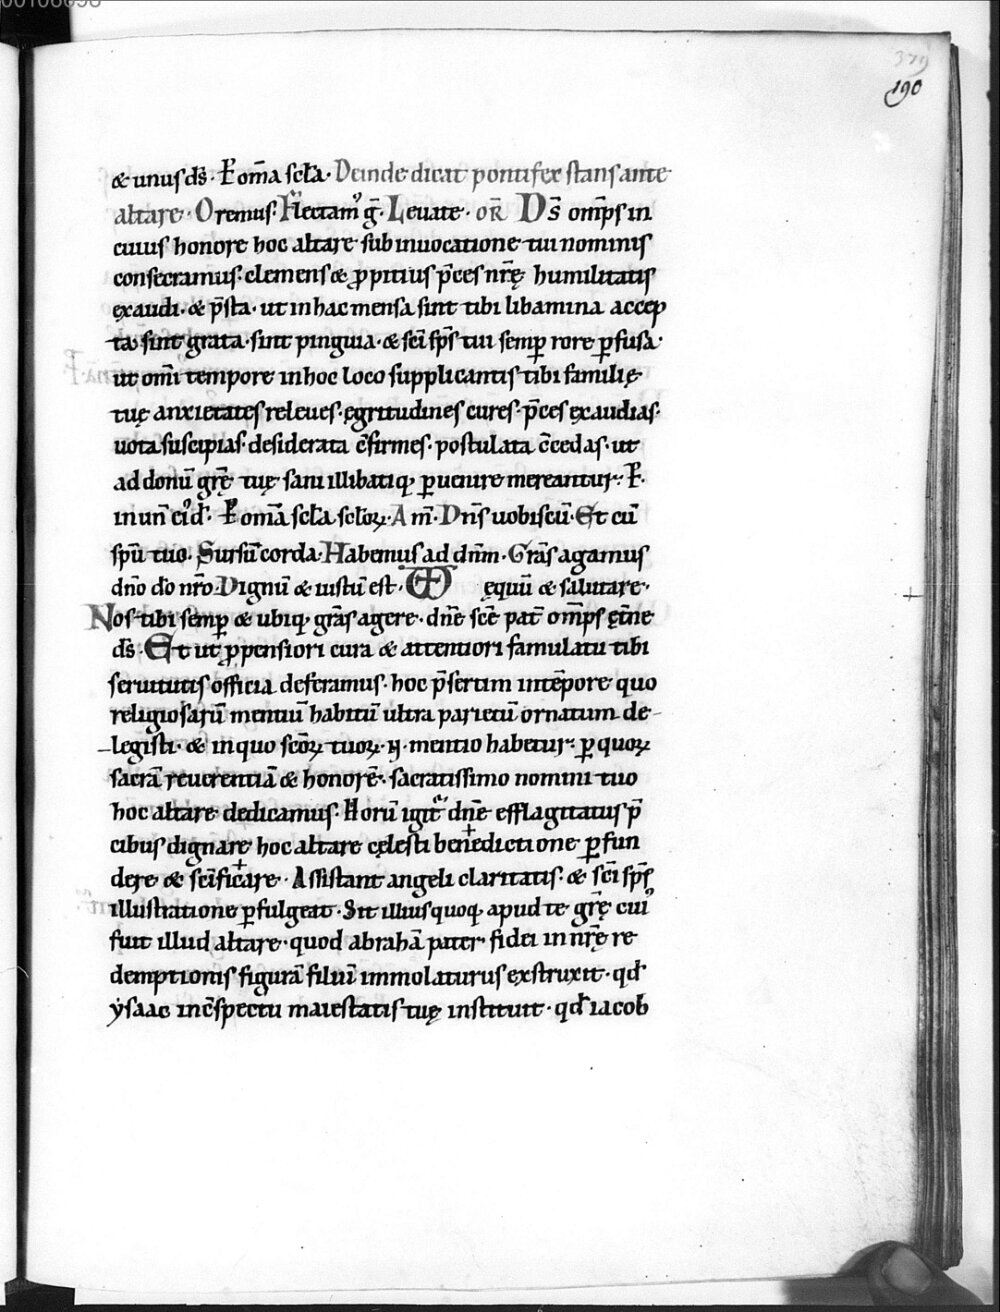 00106698
379
190
& unus d̄s. P̲ om̄a sc̄la. Deinde dicat pontifex stans ante
altare. Oremus. Flectam⁹ ḡ. Leuate. OR̄ D̄s om̄ps in
cuius honore hoc altare sub inuocatione tui nominis
consecramus. clemens & ꝓpitius p̄ces nr̄ę humilitatis
exaudi. & p̄sta. ut in hac mensa sint tibi libamina accep
ta sint grata. sint pinguia. & sc̄i sp̄s tui semꝑ rore ꝑfusa.
ut om̄i tempore in hoc loco supplicantis tibi familię
tuę anxietates releues. ęgritudines cures. p̄ces exaudias.
uota suscipias. desiderata c̄firmes. postulata c̄cedas. ut
ad donū gr̄ę tuę sani illibatiq; ꝑuenire mereantur. P̲.
in un̄ ei⁹d̄. P̲ om̄a sc̄la sc̄loꝝ. Am̄. Dn̄s uobiscū. Et cū
sp̄u tuo. Sursū corda. Habemus ad dn̄m. Gr̄as agamus
dn̄o d̄o nr̄o. Dignū & iustū est. ęquū & salutare.
Nos tibi semꝑ & ubiq; gr̄as agere. dn̄e sc̄e pat̄ om̄ps ęt̄ne
d̄s. Et ut ꝓpensiori cura & attentiori famulatu tibi
seruitutis officia deferamus. hoc p̄sertim in tēpore quo
religiosarū mentiū habitū ultra parietū ornatum de-
-legisti. & in quo sc̄oꝝ tuoꝝ. ꝶ. mentio habetur. ꝑ quoꝝ
sacrā reuerentiā & honorē. sacratissimo nomini tuo
hoc altare dedicamus. Horū igit̄ dn̄e efflagitatus p̄
cibus dignare hoc altare cęlesti ben+edictione ꝑfun
dere & sc̄i+ficare. Assistant angeli claritatis. & sc̄i sp̄s
illustratione ꝑfulgeat. Sit illius quoq; apud te gr̄ę cui⁹
fuit illud altare. quod abrahā pater fidei in nr̄ę re
demptionis figurā filiū immolaturus exstruxit. qd̄
ẏsaac in c̄spectu maiestatis tuę instituit. qd̄ iacob